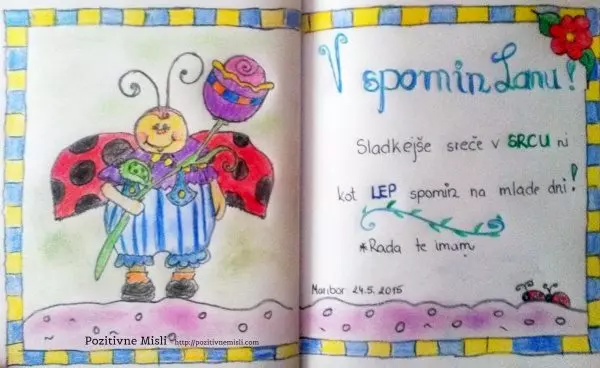 V spomin Lanu!
Sladkejše sreče v SRCU ni
kot LEP spomin na mlade dni!
*Rada te imam
Maribor 24.5.2015
Pozitivne Misli - http://pozitivnemisli.com